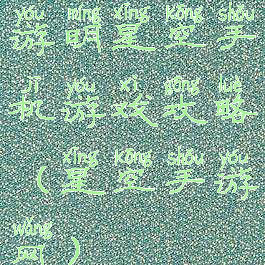 yóu míng xīng kōng shǒu
游明星空手
jī yóu xì gōng lüè
机游戏攻略
xīng kōng shǒu yóu
（星空手游
wǎng
网）